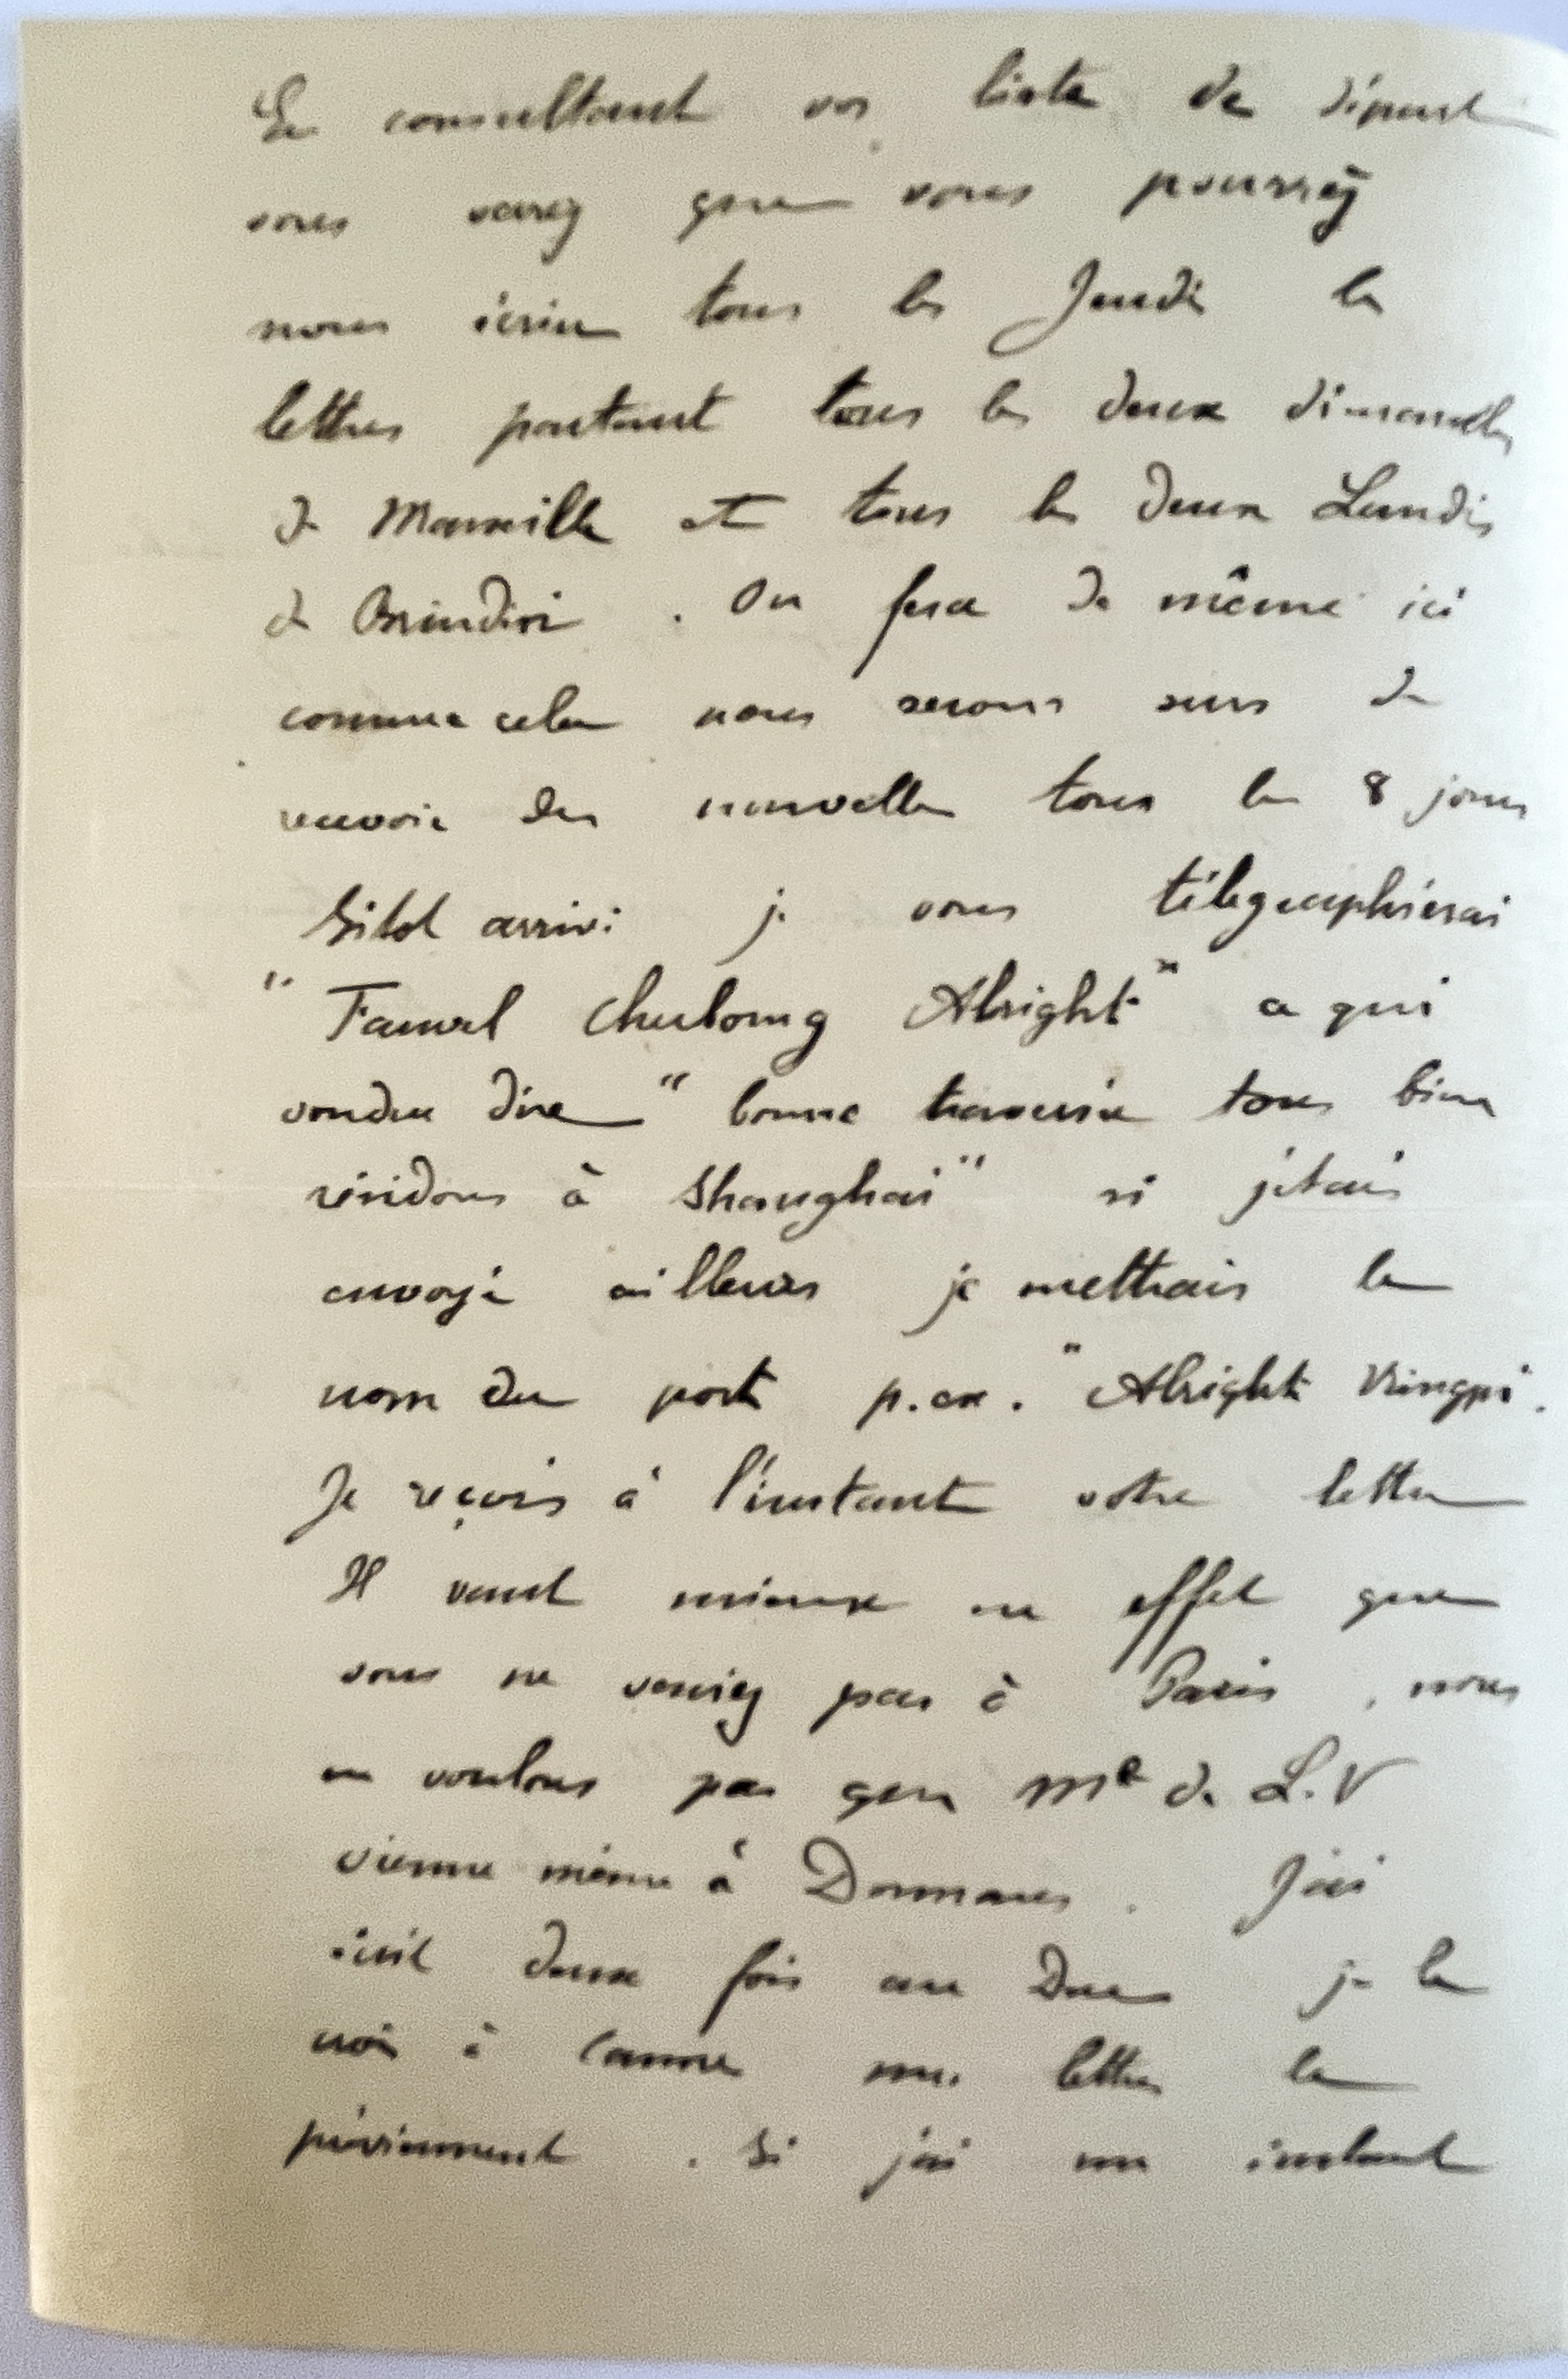 En consultant vos liste de départ
vous verrez que vous pourrez
nous écrire tous les Jeudi les
lettres partant tous les deux dimanches
de Marseille et tous les deux Lundis
de Brindisi . On fera de même ici
comme cela nous serons surs de
recevoir des nouvelles tous les 8 jours
Sitot arrivé je vous télégraphierai
" Fauvel Alright " a qui
voudra dire " bonne traversée tous bien
résidons à Shanghai " si jétais
envoyé ailleurs je mettrais le
nom du port p.ex. " Alright
Je reçois à l'instant votre lettre
Il vaut mieux en effet que
vous ne veniez pas à Paris , nous
ne voulons pas que Me de L.V
vienne même à Dormans . Jai
écrit deux fois au Duc je le
crois à Cannes mes lettres le
préviennent . Si jai un instant